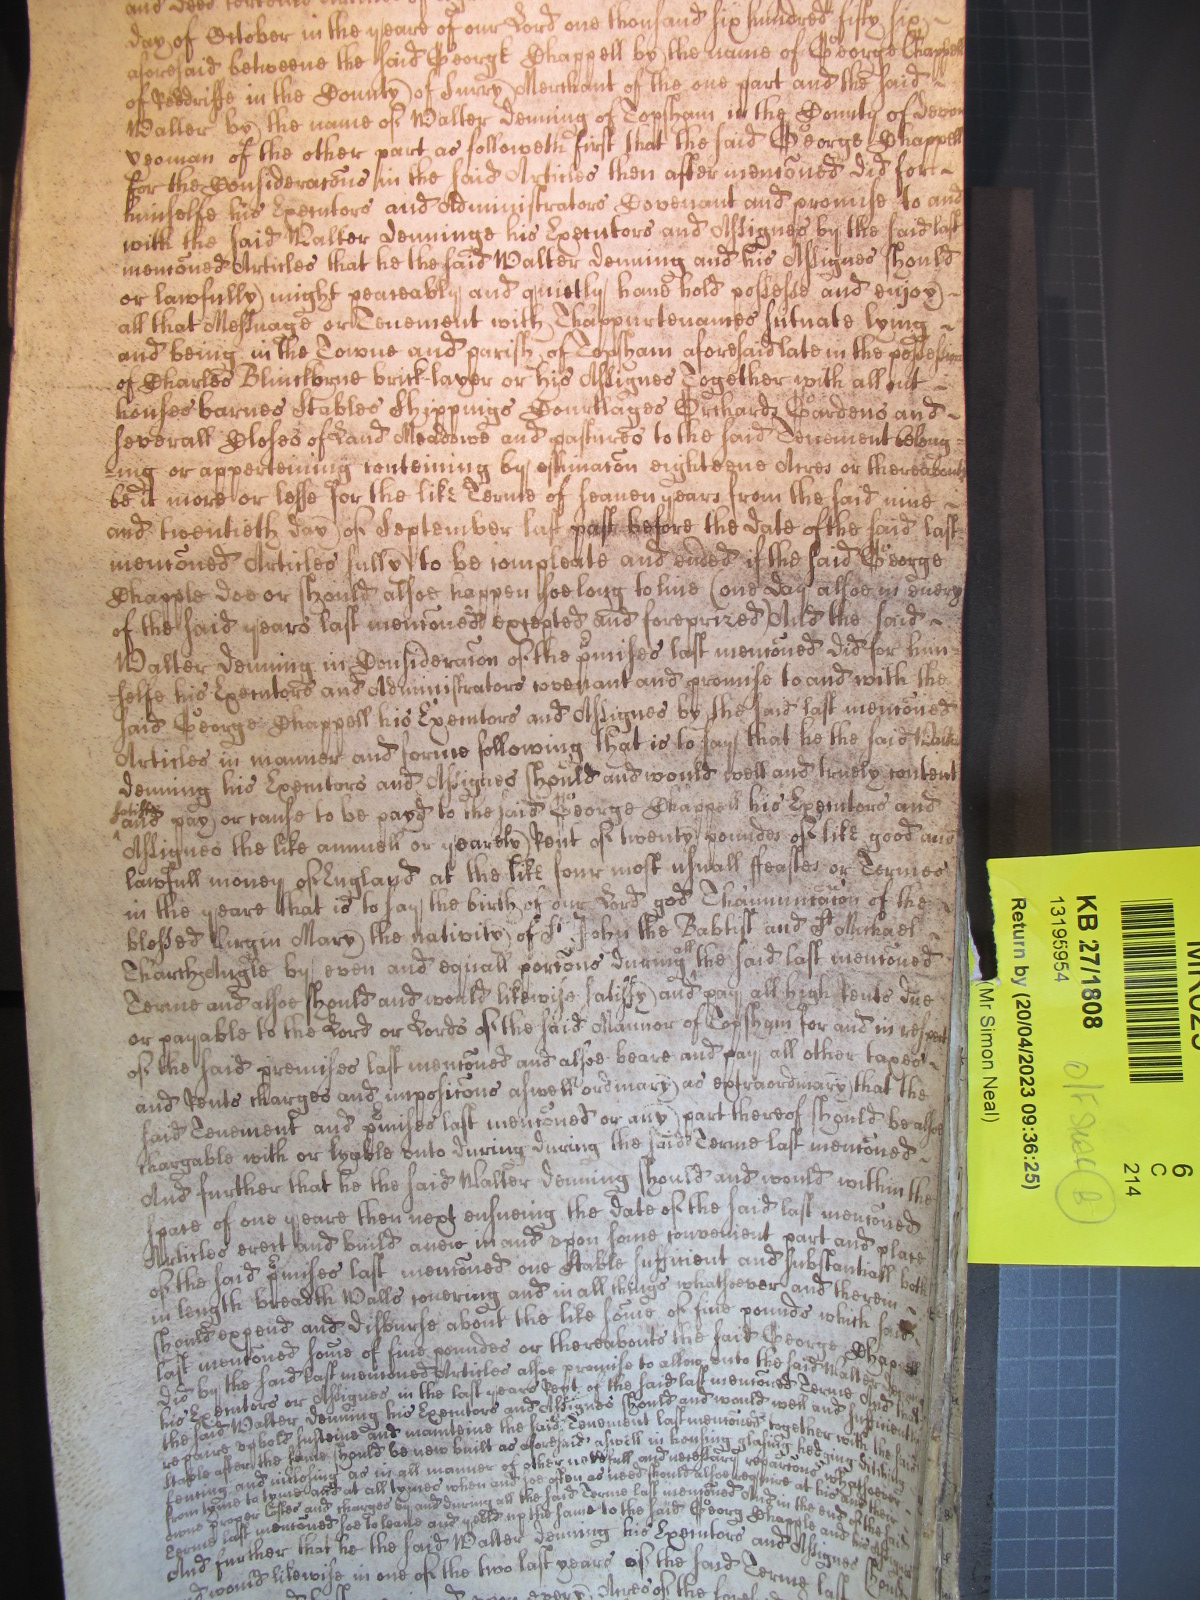 day of October in the yeare of our Lord one thousand six hundred fifty six
aforesaid betweene the said George Chappell by the name of George Chappell
of Reddriffe in the County of Surry Merchant of the one part and the said
Walter by the name of Walter Denning of Topsham in the County of Devon
yeoman of the other part as followeth first that the said George Chappell
for the Consideracõns in the said Articles then after mencõned did for
himselfe his Executors and Administrators Covenant and promise to and
with the said Walter Denninge his Executors and Assignes by the said last
mencõned Articles that he the said Walter Denning and his Assignes should
or lawfully might peaceably and quietly have hold possesse and enjoy
all that Messuage or Tenement with Thappurtenances scituate lying
and being in the Towne and parish of Topsham aforesaid late in the possession
of Charles Blinckhorne brick-layer or his Assignes Together with all out
houses barnes stables Shippings Courtlages Orchards Gardens and
severall Closes of Land Meadowe and pastures to the said Tenement belong=
=ing or apperteining conteining by estimacõn eighteene Acres or thereabouts
be it more or lesse for the like Terme of seaven yeares from the said nine
and twentieth day of September last past before the date of the said last
mencõned Articles fully to be compleate and ended if the said George
Chapple doe or should alsoe happen soe long to live (one day alsoe in every
of the said yeares last mencõned excepted and foreprized) And the said
Walter Denning in Consideracõn of the pmises last mencõned did for him=
=selfe his Executors and Administrators covenant and promise to and with the
said George Chappell his Executors and Assignes by the said last mencõned
Articles in manner and forme following that is to say that he the said Walter
Denning his Executors and Assignes should and would well and truely content
satisfie
and pay or cause to be payd to the said George Chappell his Executors and
Assignes the like annuell or yearely Rent of twenty poundes of like good and
lawfull money of England at the like four most usuall ffeastes or Termes
in the yeare that is to say the birth of our Lord god Thannunciacõn of the
blessed Virgin Mary the nativity of St John the Babtist and St Michael
Tharchangle by even and equall porcõns during all the said last mencõned
Terme and alsoe should and would likewise satisfy and pay all high Rents due
or payable to the Lord or Lords of the said Mannor of Topsham for and in respect
of the said premises last mencõned and alsoe beare and pay all other taxes
and Rents charges and imposicõns aswell ordinary as extraordinary that the
said Tenement and pmises last mencõned or any part thereof should be alsoe
chargable with or lyable unto during during the said Terme last mencõned
And further that he the said Walter Denning should and would within the
space of one yeare then next ensueing the date of the said last mencõned
Articles erect and build anew in and upon some convenient part and place
of the said pmises last mencõned one Stable sufficient and substantiall both
in length breadth Walls covering and in all things whatsoever and therein
should expend and disburse about the like some of five pounds which said
last mencõned some of five poundes or thereabouts the said George Chappell
did by the said last mencõned Articles alsoe promise to allow unto the said Walter Denning
his Executors or Assignes in the last yeares Rent of the said last mencõned Terme And that
the said Walter Denning his Executors and Assignes should and would well and sufficiently
repaire uphold susteine and mainteine the said Tenement last mencõned together with the said
stable after the same should be new built as aforesaid aswell in housing glasing hedging ditching
fencing and inclosing as in all manner of other needfull and necessary reparacõns whatsoever
from tyme to tyme and at all tymes when and soe often as need should alsoe require at his and their
owne proper Costes and charges by and during all the said Terme last mencõned And in the end of the said
Terme last mencõned soe to leave and yeild up the same to the said George Chapple and his Assignes
And further that he the said Walter Denning his Executors and Assignes should
and would likewise in one of the two last yeares of the said Terme last
Acres of the
KB 27/1808
13195954
Return by (20/04/2023 09:36:25)
(Mr Simon Neal)
6
C
214